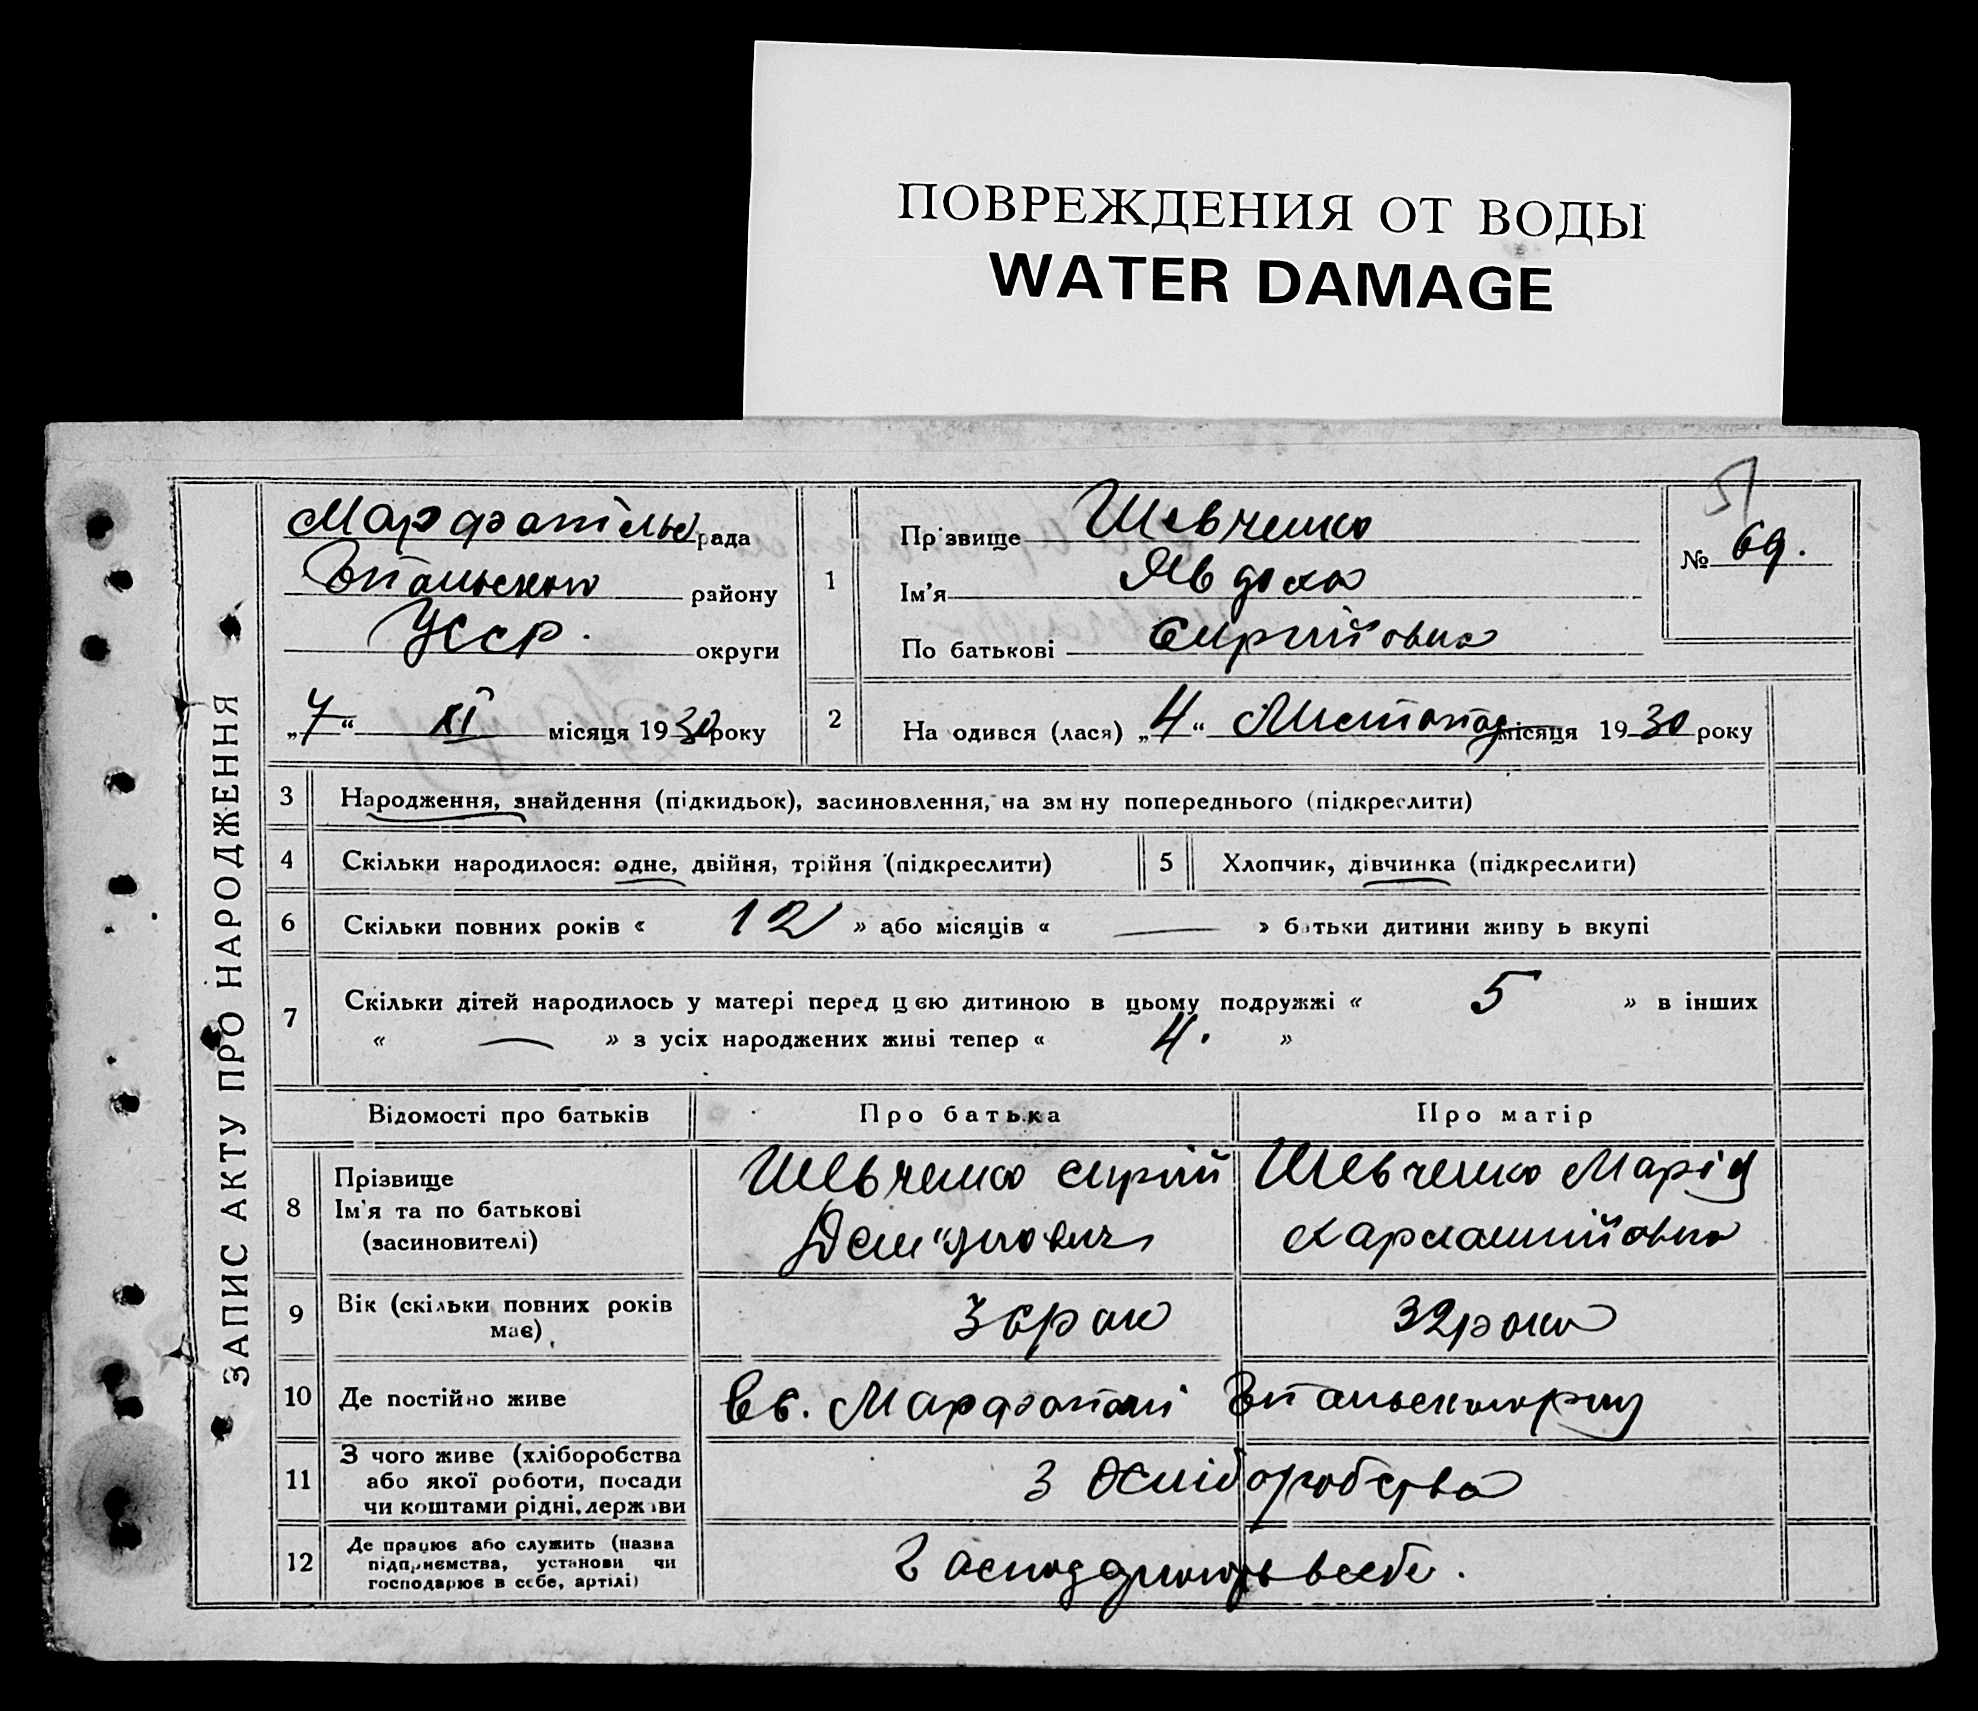 ПОВРЕЖДЕНИЯ ОТ ВОДЫ
WATER DAMAGE
ЗАПИС АКТУ ПРО НАРОДЖЕННЯ
рада
району
УССР. округи
„7“ XI місяця 1930 року
1
Прізвище Шевченко
Ім'я Явдоха
По батькові Сиргійовна
51
№ 69.
2 На одився (лася) „4“ Листопад місяця 1930 року
3 Народження, знайдення (підкидьок), засиновлення, на зм ну попереднього (підкреслити)
4 Скільки народилося: одне, двійня, трійня (підкреслити) 5 Хлопчик, дівчинка (підкреслити)
6 Скільки повних років « 12 » або місяців « — » батьки дитини живу ь вкупі
7 Скільки дітей народилось у матері перед цією дитиною в цьому подружжі « 5 » в інших
« — » з усіх народжених живі тепер « 4. »
Відомості про батьків Про батька Про матір
8 Прізвище
Ім'я та по батькові
(засиновителі)
Шевченко Сиргій
Дем'янович
Шевченко Марія
Харлампійовна
9 Вік (скільки повних років
має)
36 рок 32 роки
10 Де постійно живе
В с.
11 З чого живе (хліборобства
або якої роботи, посади
чи коштами рідні, держави
З хліборобства
12 Де працює або служить (назва
підприємства, установи чи
господарює в себе, артілі)
Господарюють в себе.